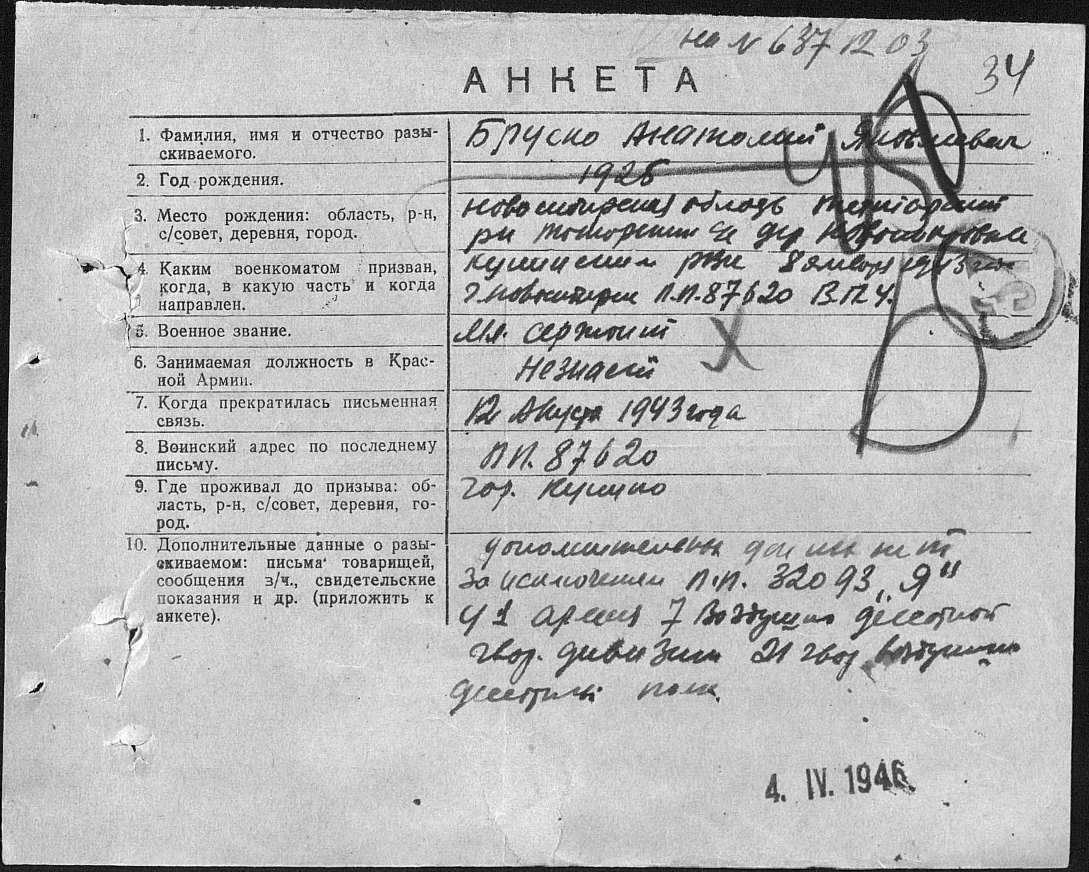 на N 637 12 03
34
АНКЕТА
1. Фамилия, имя и отчество разы-
скиваемого.
Бруско Анатолий Яковлевич
2. Год рождения.
1925
3. Место рождения: область, р-н,
с/совет, деревня, город.
Новосибирская
дер
4. Каким военкоматом призван,
когда, в какую часть и когда
направлен.
рвк 8 января 1943
П.П. 87620 В.П.У.
5. Военное звание.
Мл. сержант
6. Занимаемая должность в Крас-
ной Армии.
Незнаем
7. Когда прекратилась письменная
связь.
12 Августа 1943 года
8. Воинский адрес по последнему
письму.
П П. 87620
9. Где проживал до призыва: об-
ласть, р-н, с/совет, деревня, го-
род.
гор. Купино
10. Дополнительные данные о разы-
скиваемом: письма товарищей,
сообщения в/ч., свидетельские
показания и др. (приложить к
анкете).
нет
за П.П. 32093 „Я"
7
гвар. дивизии 21 гвар
полк.
4. IV. 1946.